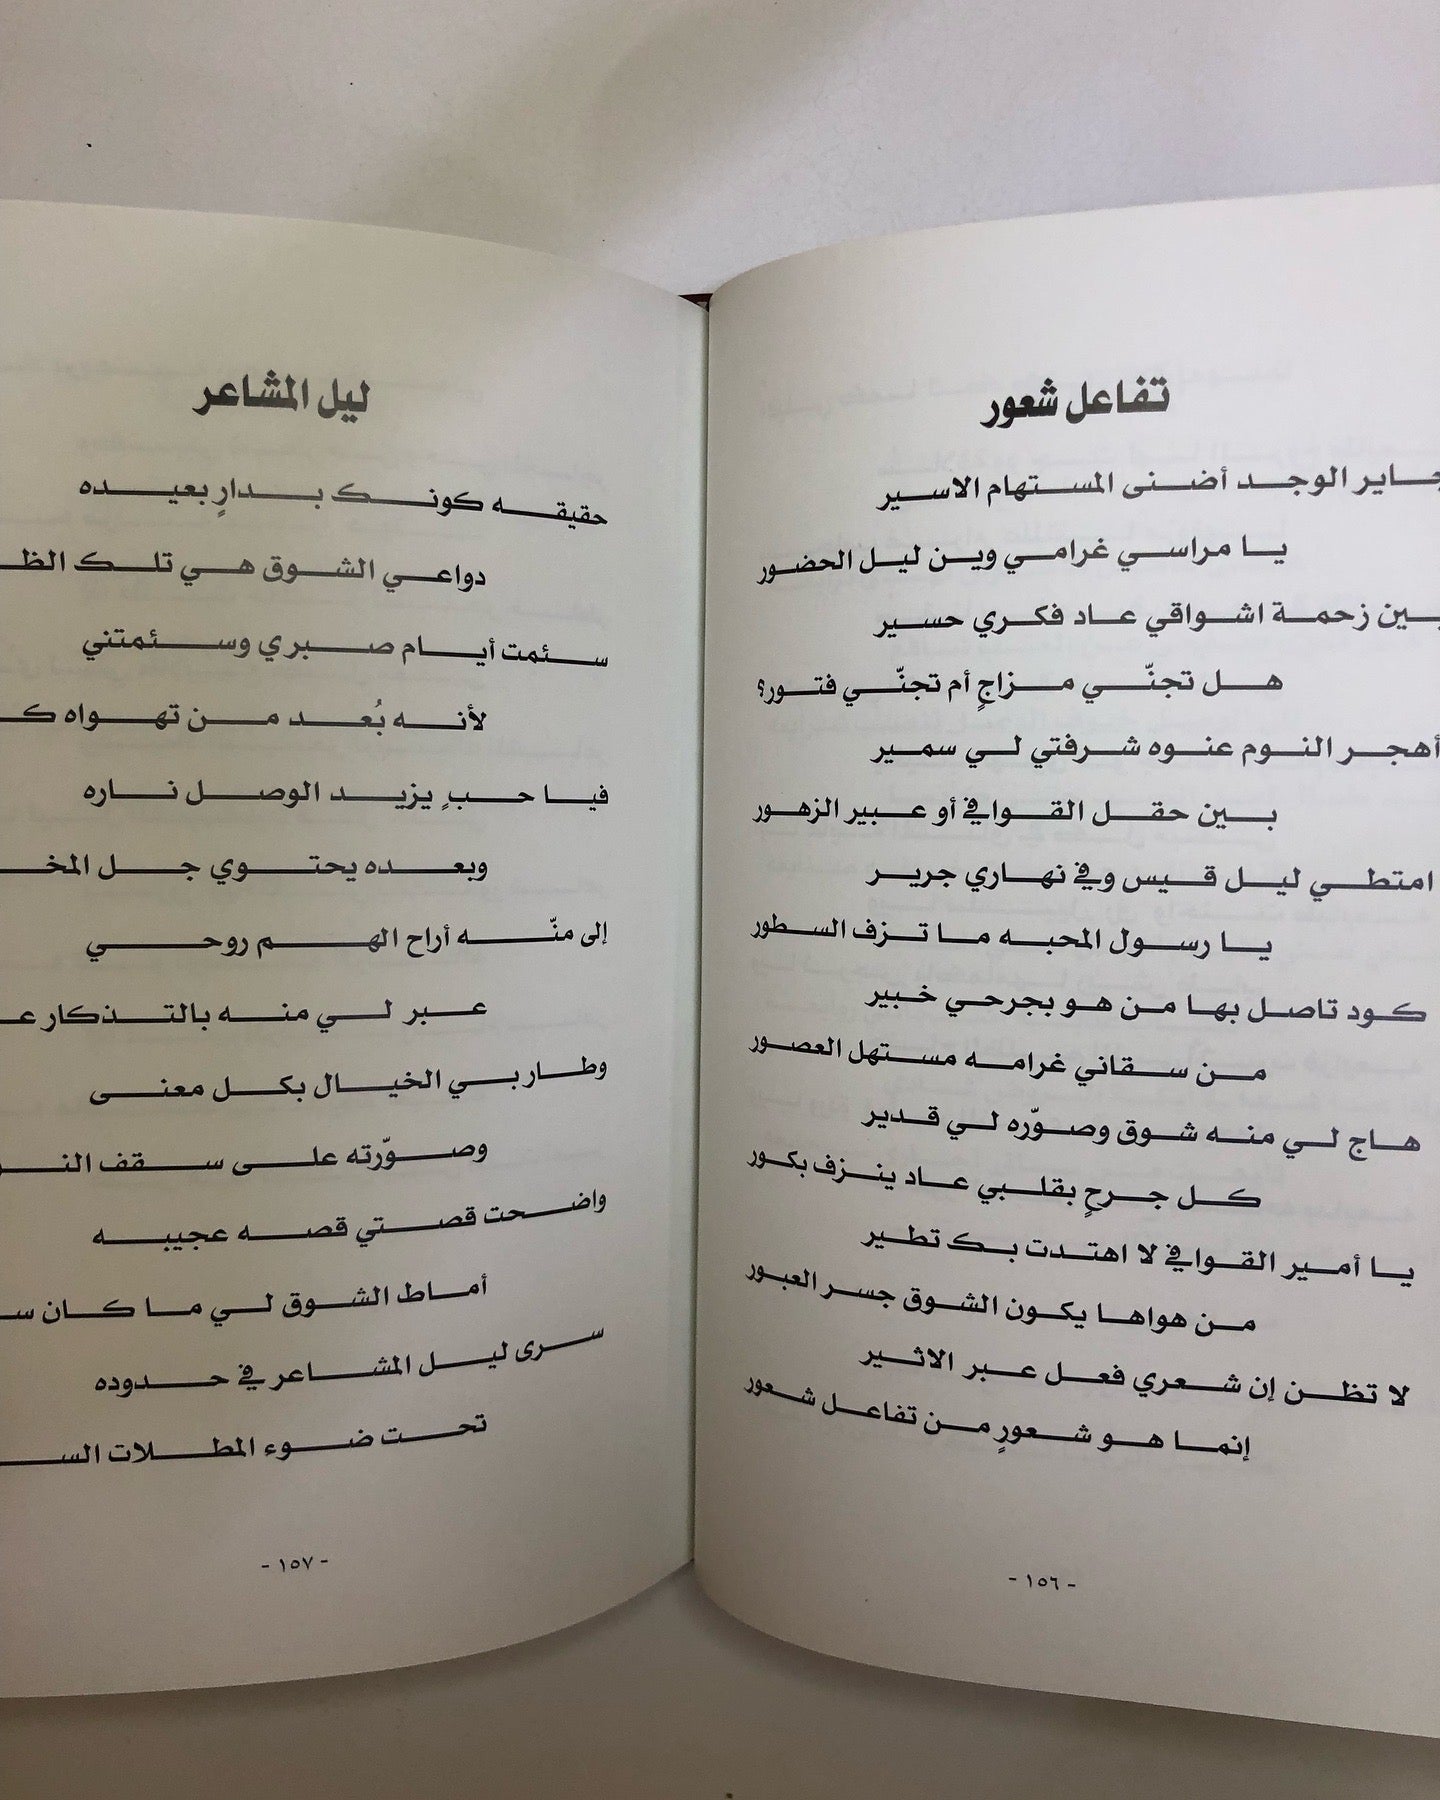 تفاعل شعور
جاير الوجد أضنى المستهام الاسير
يا مراسي غرامي وين ليل الحضور
بين زحمة اشواقي عاد فكري حسير
هل تجنّي مزاجٍ أم تجنّي فتور؟
أهجر النوم عنوه شرفتي لي سمير
بين حقل القوافي أو عبير الزهور
امتطي ليل قيس وفي نهاري جرير
يا رسول المحبه ما تزف السطور
كود تاصل بها من هو بجرحي خبير
من سقاني غرامه مستهل العصور
هاج لي منه شوق وصوّره لي قدير
كل جرحٍ بقلبي عاد ينزف بكور
يا أمير القوافي لا اهتدت بك تطير
من هواها يكون الشوق جسر العبور
لا تظن إن شعري فعل عبر الاثير
إنما هو شعورٍ من تفاعل شعور
- ١٥٦ -
ليل المشاعر
حقيقه كونك بدارٍ بعيده
دواعي الشوق هي تلك
سئمت أيام صبري وسئمتني
لأنه بُعد من تهواه
فيا حبٍ يزيد الوصل ناره
وبعده يحتوي جل
إلى منّه أراح الهم روحي
عبر لي منه بالتذكار
وطار بي الخيال بكل معنى
وصوّرته على سقف
واضحت قصتي قصه عجيبه
أماط الشوق لي ما كان
سرى ليل المشاعر في حدوده
تحت ضوء المطلات
- ١٥٧ -